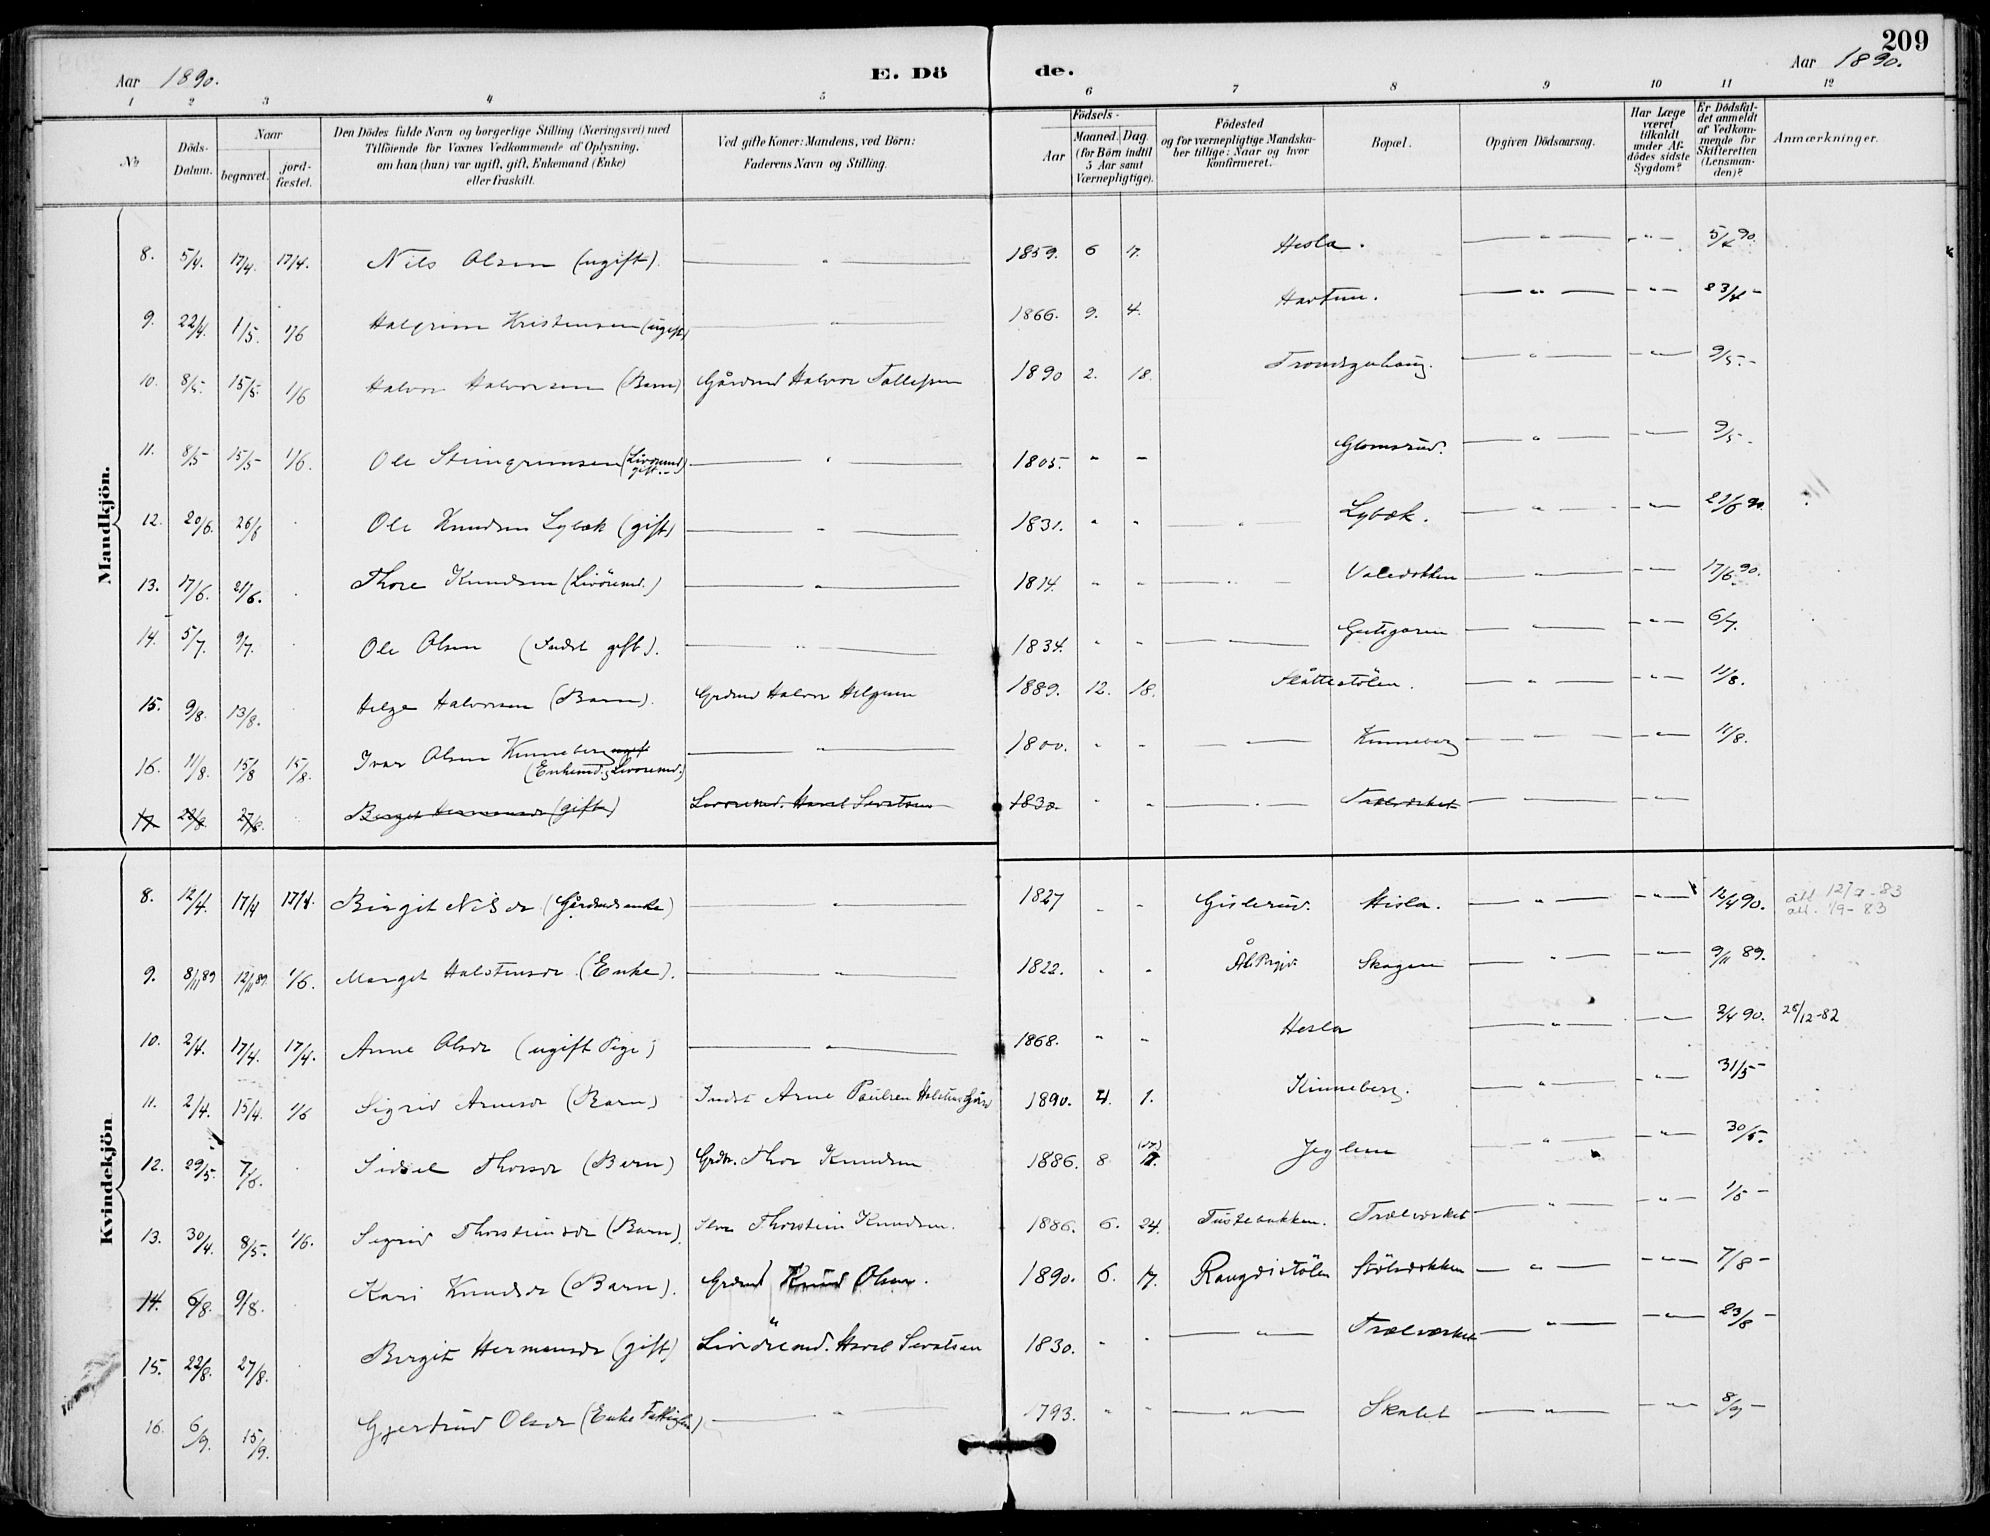 209
Aar 1890.
E. Döde.
Aar 1890.
1 2 3 4 5 6 7 8 9 10 11 12
No
Döds-Datum.
Naar
begravet.
jordfæstet.
Den Dödes fulde Navn og borgerlige Stilling (Næringsvei) med
Tilföiende for Voxnes Vedkommende af Oplysning,
om han (hun) var ugift, gift, Enkemand (Enke)
eller fraskilt.
Ved gifte Koner: Mandens, ved Börn:
Faderens Navn og Stilling.
Födsels-
Aar
Maaned.
Dag.
(for Börn indtil
5 Aar samt
Værnepligtige).
Födested
og for værnepligtige Mandska-
ber tillige: Naar og hvor
konfirmeret.
Bopæl.
Opgiven Dödsaarsag.
Har Læge
været
tilkaldt
under Af-
dödes sidste
Sygdom?
Er Dödsfal-
det anmeldt
af Vedkom-
mende for
Skifteretten
(Lensman-
den)?
Anmærkninger.
Mandkjön.
8. 5/4. 17/4. 17/4. Nils Olsen (ugift). — " — 1859. 6 17. Hesla. — " — — " — 5/4 90.
9. 22/4. 1/5. 1/6 Halgrim Kristensen (ugift) — " — 1866. 9. 4. — " — — " —
10. 8/5. 15/5. 1/6 Halvor Halvorsen (Barn) Gårdmd Halvor Tollefsen 1890 2. 18. — " — — " — 9/5. -
11. 8/5 15/5 1/6. Ole Steingrimsen (Livöremd gift.) — " — 1805. " — Glomsrud. — " — — " — 9/5 -
12. 20/6. 26/6 Ole Knudsen Lybæk (gift) — " — 1831. " " " Lybæk. — " — — " — 21/6 90.
13. 17/6. 21/6. Thore Knudsen (Livöremd.) — " — 1814. " " — " — — " — — " — 17/6 90.
14. 5/7. 9/7. Ole Olsen (Indst gift). — " — 1834. " " — — — " — — " — 6/7.
15. 9/8. 13/8. Helge Halvorsen (Barn). Grdmd Halvor Helgesen 1889. 12. 18. Slåttestölen. — " — — " — 11/8.
16. 11/8. 15/8 15/8. Ivar Olsen Kinneberg ugift (Enkemd., Livöremd.) — " — 1800. " " — " — Kinneberg — — — " — 11/8.
17 22/8 27/8. Birgit Hermansdr (gift) Livöremd. Havel Sevatsen 1830. " " — " — Trælværket — — —
Kvindekjön
8. 12/4. 17/4 17/4. Birgit Nilsdr (Gårdmdsenke) — " — 1827 " " Gislerud. Hesla. — " — — " — 12/4 90. 12/7-83
1/9-83
9. 8/11 89 12/11 89. 1/6. Margit Halstensdr. (Enke). — " — 1822. " " Skogen — " — — " — 9/11 89.
10. 2/4. 17/4. 17/4. Anne Olsdr (ugift Pige) — " — 1868. " " Hesla — " — — " — 2/4 90. 28/12-82
11. 2/4. 15/4. 1/6 Sigrid Arnesdr (Barn) Indst Arne Paulsen 1890. 4. 1. Kinneberg. — " — — " — 31/5 -
12. 29/5. 7/6. Sidsel Thorsdr (Barn) Thor Knudsen 1886. 8 Jeglum — " — — " — 30/5.
13. 30/4. 8/5. 1/6. Sigrid Thorsteinsdr (Barn). Thorstein Knudsen. 1886. 6. 24. Tuftebakken. Trælværket — " — — " — 1/5 -
14. 6/8. 9/8. Kari Knudsdr (Barn). Grdmd Knud Olsen. 1890. 6. 17. Rangdistölen Stölsdokken — " — — " — 7/8 -
15. 22/8. 27/8. Birgit Hermansdr (gift) Livöremd. Havel Sevatsen 1830. " " — " — Trælværket — " — — " — 23/8 -
16. 6/9. 15/9. Gjertrud Olsdr (Enke Fattiglem) — " — 1793. " " — " — Skalet — " — — " — 8/9 -